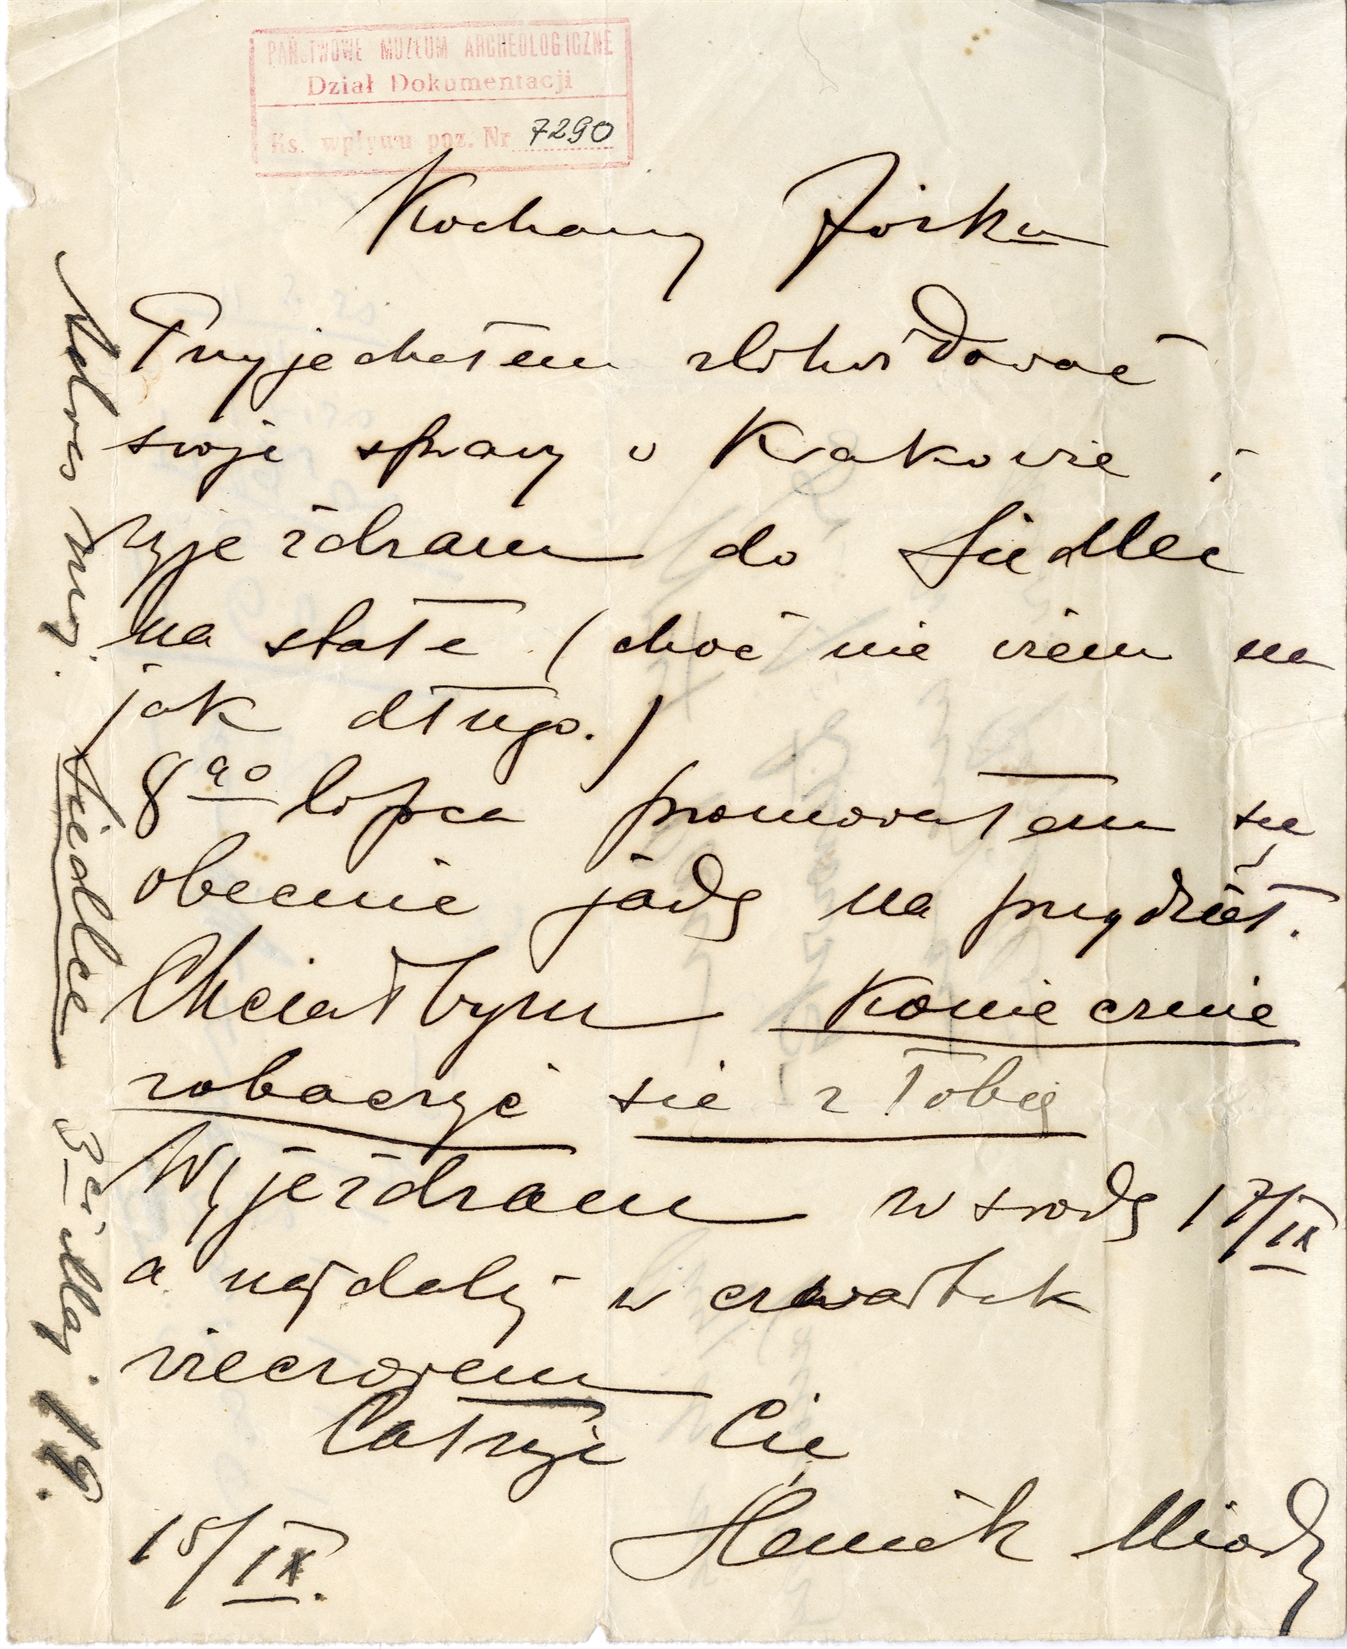 PAŃSTWOWE MUZEUM ARCHEOLOGICZNE
Dział Dokumentacji
Ks. wpływu poz. Nr 7290
Kochany Józku
Przyjechałem zlikwidować
swoje sprawy w Krakowie i
wyjeżdżam do Siedlec
na stałe (choć nie wiem na
jak długo.)
8go lipca promowałem się
obecnie jadę na przydział.
Chciałbym koniecznie
zobaczyć się z Tobą
Wyjeżdżam w środę 17/IX
a najdalej w czwartek
wieczorem
Całuję Cię
Heniek
15/IX.
Adres mój. Siedlce 3ci Maj 19.